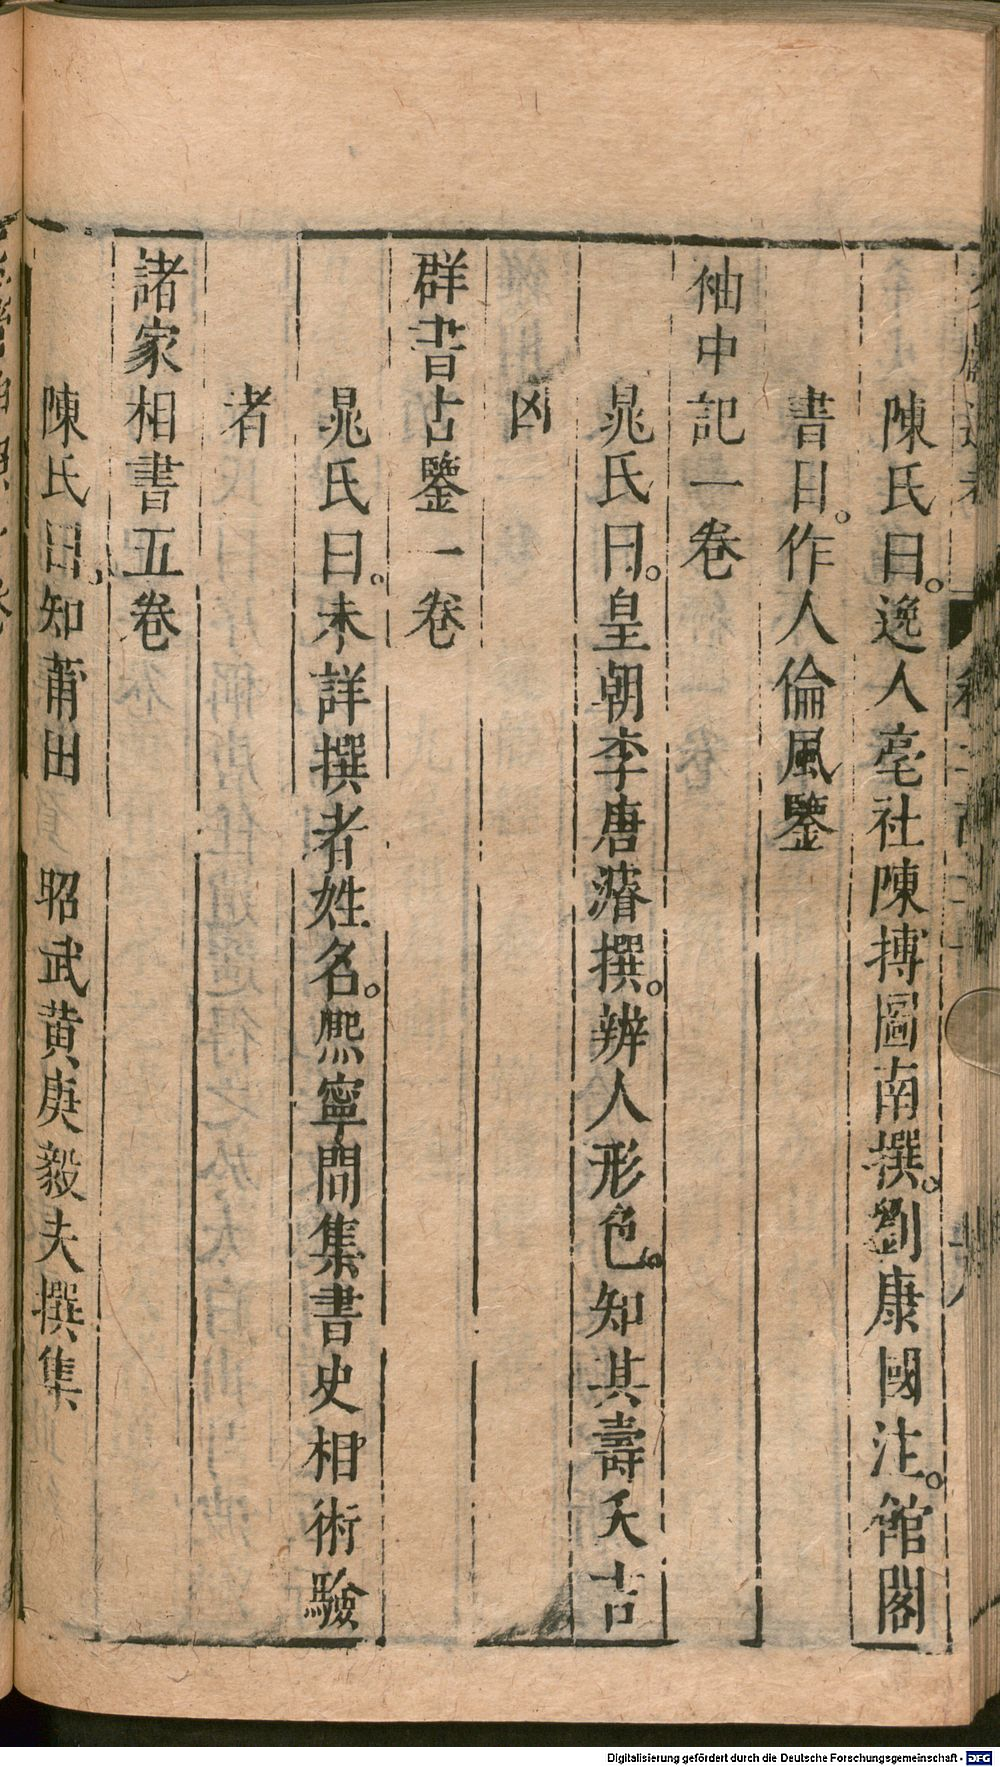 陳氏曰。逸人亳社陳摶圖南撰。劉康國注。館閣
書曰。作人倫風鑒
袖中記一卷
晁氏曰。皇朝李唐濳撰。辨人形色。知其壽夭吉
凶
群書古鑒一卷
晁氏曰。未詳撰者姓名。熈寧間集書史相術驗
者
諸家相書五卷
陳氏曰。知莆田　昭武黄庚毅夫撰集
Digitalisierung gefördert durch die Deutsche Forschungsgemeinschaft - DFG